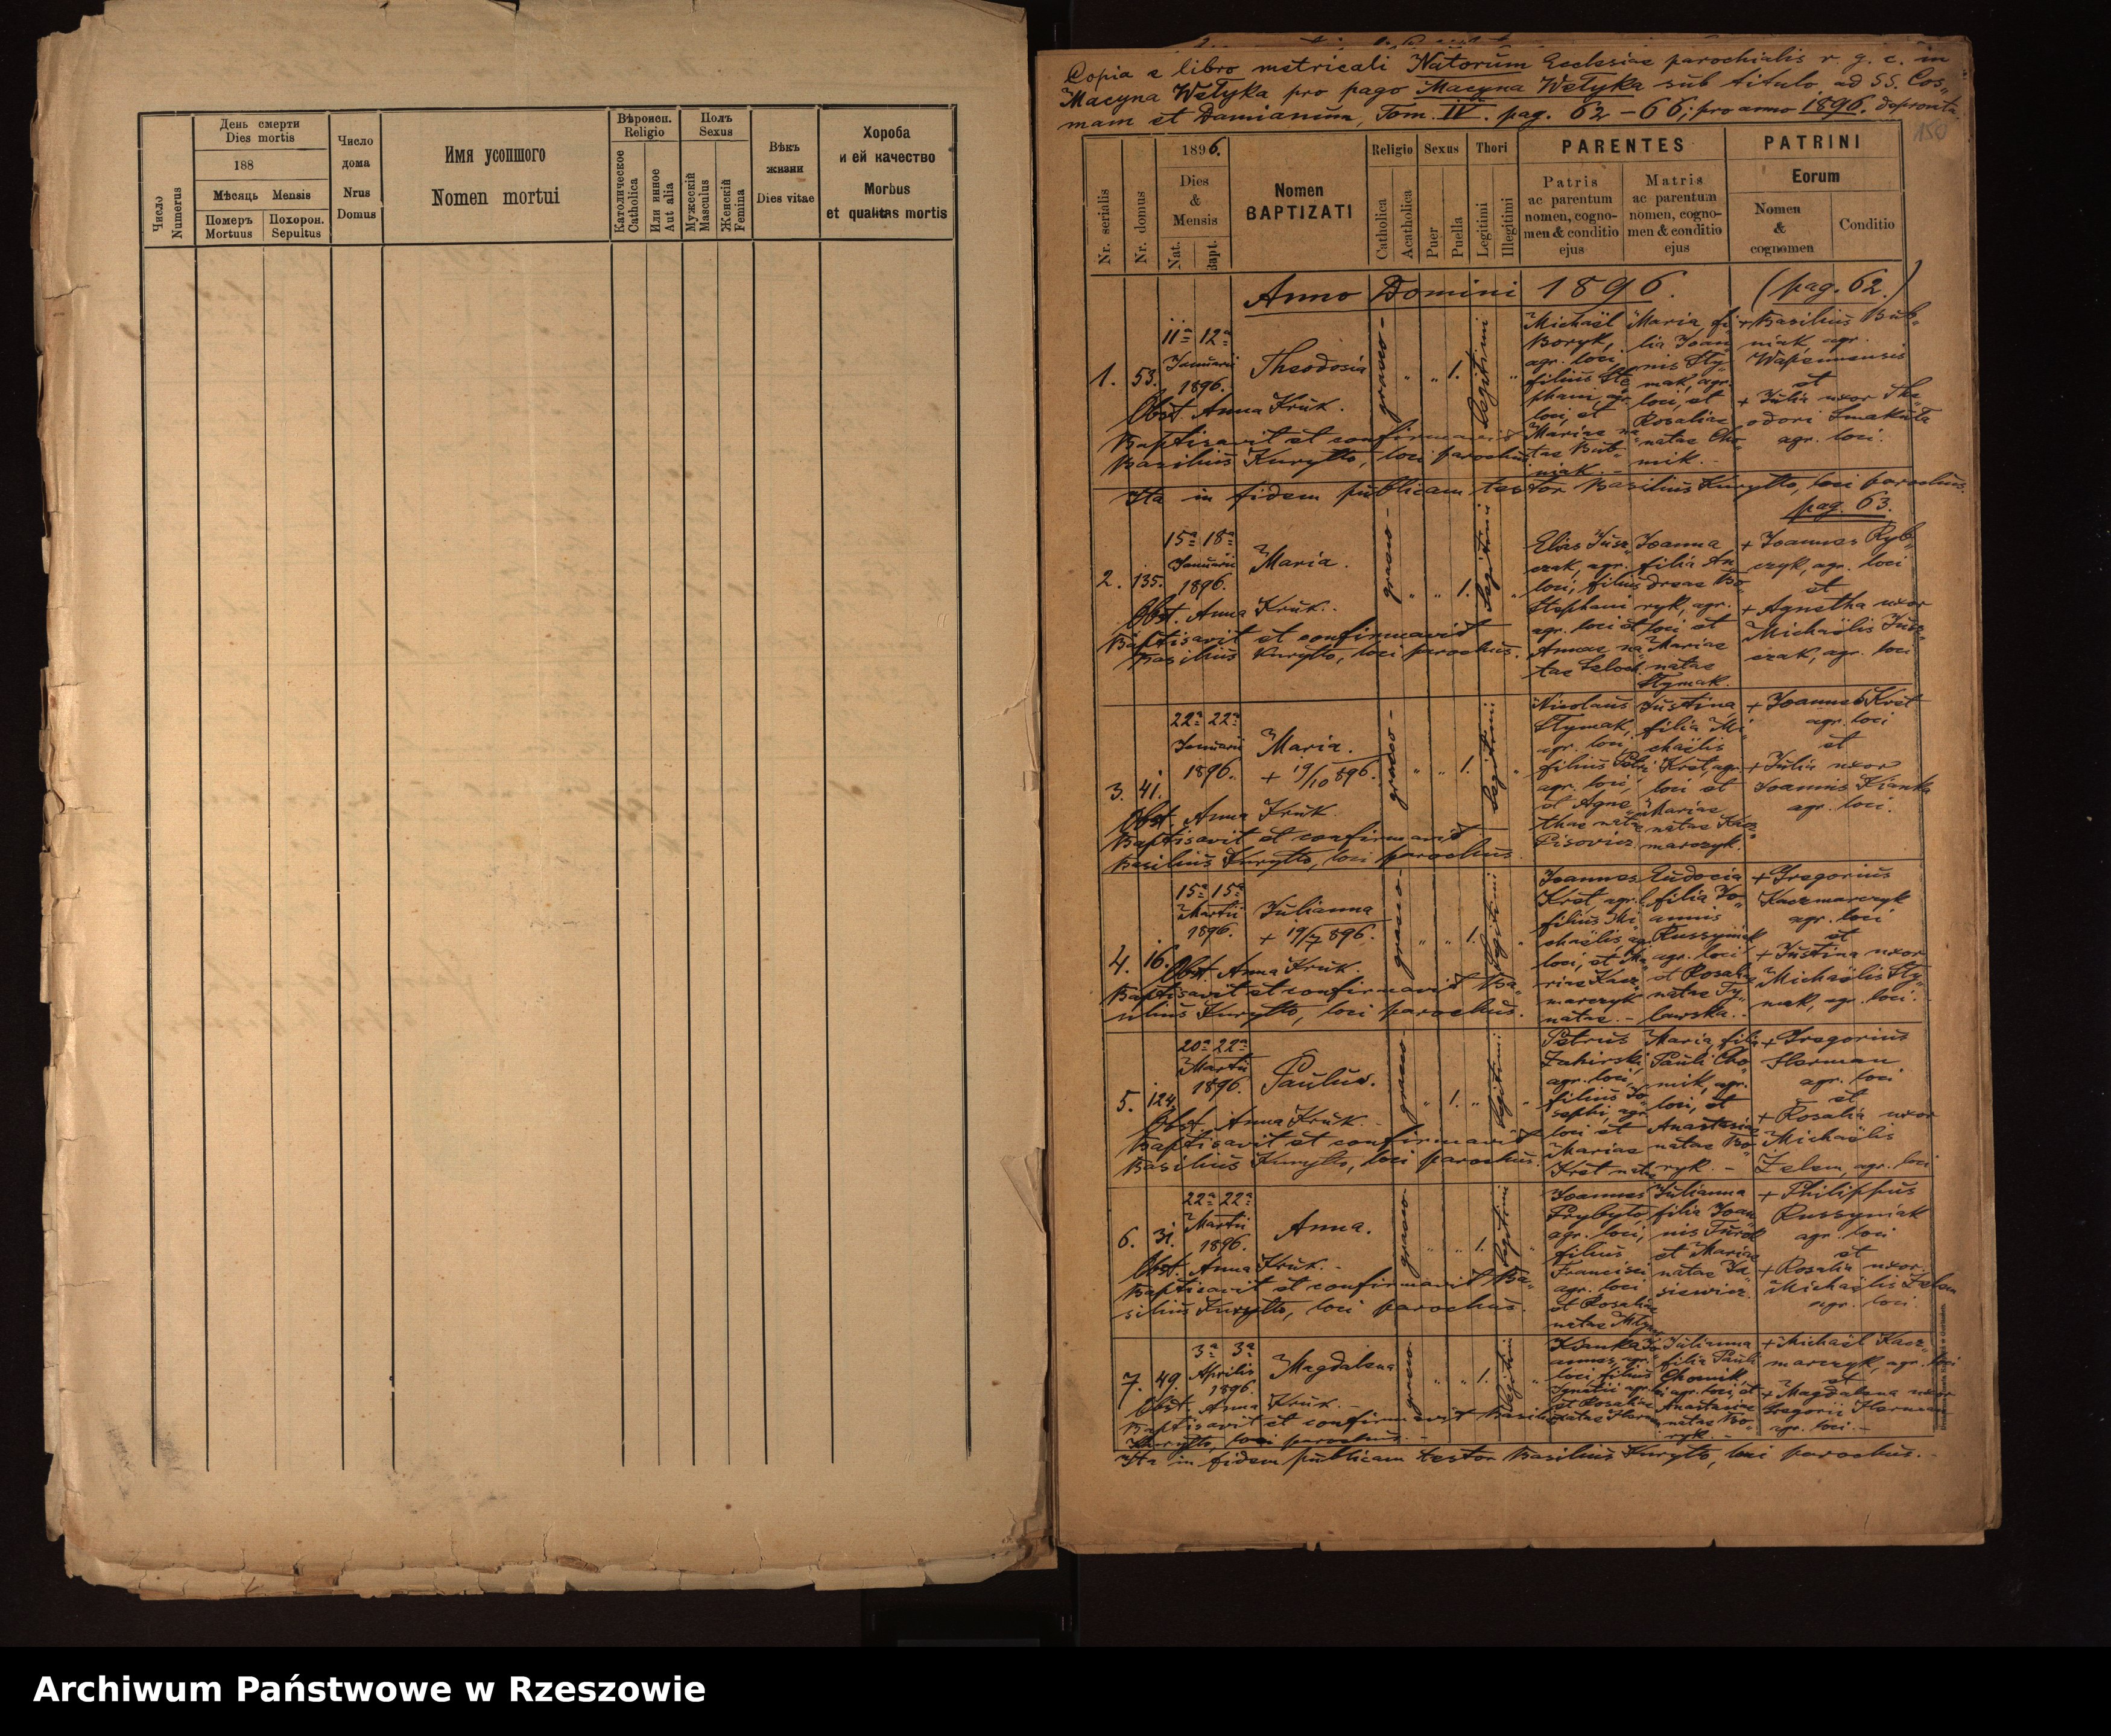 День смерти
Dies mortis
188
Мѣсяць Mensis
Померъ
Mortuus
Похорон.
Sepultus
Число
Numerus
Число
дома
Nrus
Domus
Имя усопшого
Nomen mortui
Вѣроисп.
Religio
Католическое
Catholica
Или инное
Aut alia
Полъ
Sexus
Мужескій
Masculus
Женскій
Femina
Вѣкъ
жизни
Dies vitae
Хороба
и ей качество
Morbus
et qualitas mortis
Copia e libro metricali Natorum Ecclesiae parochialis r. g. c. in
Macyna Wełyka pro pago Macyna Wełyka sub titulo ad SS. Cos„
mam et Damianum, Tom. IV. pag. 62 – 66; pro anno 1896. deprompta
150
Nr. serialis
Nr. domus
1896.
Dies
&
Mensis
Nat.
Bapt.
Nomen
BAPTIZATI
Religio
Catholica
Acatholica
Sexus
Puer
Puella
Thori
Legitimi
Illegitimi
PARENTES
Patris
ac parentum
nomen, cogno-
men & conditio
ejus
Matris
ac parentum
nomen, cogno-
men & conditio
ejus
PATRINI
Eorum
Nomen
&
cognomen
Conditio
Anno Domini 1896. (pag. 62.)
1. 53.
11a 12a
Januarii
1896.
Theodosia
graeco -
„ „ 1.
Legitimi
Obst. Anna Kruk.
Baptisavit et confirmavit
Basilius Kuryłło, loci parochus
Michaël
Boryk,
agr. loci,
filius Ste„
phani, agr.
loci, et
Mariae na„
tae Bub„
niak. -
Maria, fi„
lia Joan„
nis Sty„
mak, agr.
loci, et
Rosaliae
natae Cho„
mik. -
+ Basilius Bub„
niak agr.
Wapiennensis
et
+ Julia uxor The„
odori Smakuła
agr. loci.
Ita in fidem publicam testor Basilius Kuryłło, loci parochus.
pag. 63.
2. 135.
15a 18a
Januarii
1896.
Maria.
graeco -
„ „ 1.
Legitimi
Obst. Anna Kruk. -
Baptisavit et confirmavit
Basilius Kuryłło, loci parochus.
Elias Jusz„
czak, agr.
loci, filius
Stephani
agr. loci et
Annae na„
tae
Joanna
filia An„
dreae Bo„
ryk, agr.
loci et
Mariae
natae
Stymak.
+ Joannes Ryb„
czyk, agr. loci
et
+ Agnetha uxor
Michaëlis Jusz„
czak, agr. loci
3. 41.
22a 22a
Januarii
1896.
Maria.
+ 19/10 896.
graeco -
„ „ 1.
Legitimi
Obst. Anna Kruk.
Baptisavit et confirmavit
Basilius Kuryłło, loci parochus
Nicolaus
Stymak,
agr. loci,
filius Petri
agr. loci,
et Agne„
thae natae
Pisowicz
Justina,
filia Mi„
chaëlis
Kret, agr.
loci et
Mariae
natae Kacz„
marczyk.
+ Joannes Kret
agr. loci
et
+ Julia uxor
Joannis Kianka
agr. loci.
4. 16.
15a 15a
Martii
1896.
Julianna
+ 19/7 896.
graeco -
„ „ 1.
Legitimi
Obst. Anna Kruk.
Baptisavit et confirmavit Ba„
silius Kuryłło, loci parochus.
Joannes
Kret, agr. l.
filius Mi„
chaëlis, agr.
loci, et Ma„
riae Kacz„
marczyk
natae. -
Eudocia
filia Jo„
annis
Russyniak
agr. loci
et Rosaliae
natae Ty„
lawska. -
+ Gregorius
Kaczmarczyk
agr. loci
et
+ Justina uxor
Michaëlis Sty„
mak, agr. loci.
5. 124.
20a 22a
Martii
1896.
Paulus.
graeco -
„ 1. „
Legitimi
Obst. Anna Kruk. -
Baptisavit et confirmavit
Basilius Kuryłło, loci parochus.
Petrus
Zahirski
agr. loci,
filius Jo„
sephi, agr.
loci et
Mariae
Kret natae
Maria, filia
Pauli Cho„
mik, agr.
loci, et
Anastasiae
natae Bo„
ryk. -
+ Gregorius
Harman
agr. loci
et
+ Rosalia uxor
Michaëlis
Zelem, agr. loci
6. 31.
22a 22a
Martii
1896.
Anna.
graeco -
„ „ 1.
Legitimi
Obst. Anna Kruk. -
Baptisavit et confirmavit Ba„
silius Kuryłło, loci parochus.
Joannes
Prybyło,
agr. loci,
filius
Francisci
agr. loci
et Rosaliae
natae
Julianna
filia Joan„
nis Turek
et Mariae
natae Ja„
siewicz.
+ Philippus
Russyniak
agr. loci
et
+ Rosalia uxor
Michaëlis Zelem
agr. loci.
7. 49.
3a 3a
Aprilis
1896.
Magdalena
graeco -
„ „ 1.
Legitimi
Obst. Anna Kruk. -
Baptisavit et confirmavit Basilius
Kuryłło, loci parochus. -
Kianka Jo„
annes, agr.
loci, filius
Ignatii agr. l.
et Rosaliae
natae Harman
Julianna
filia Pauli
Chomik,
agr. loci, et
Anastasiae
natae Bo„
ryk. -
+ Michaël Kacz„
marczyk, agr. loci
et
+ Magdalena uxor
Gregorii Harman
agr. loci. -
Ita in fidem publicam testor Basilius Kuryłło, loci parochus. -
Archiwum Państwowe w Rzeszowie